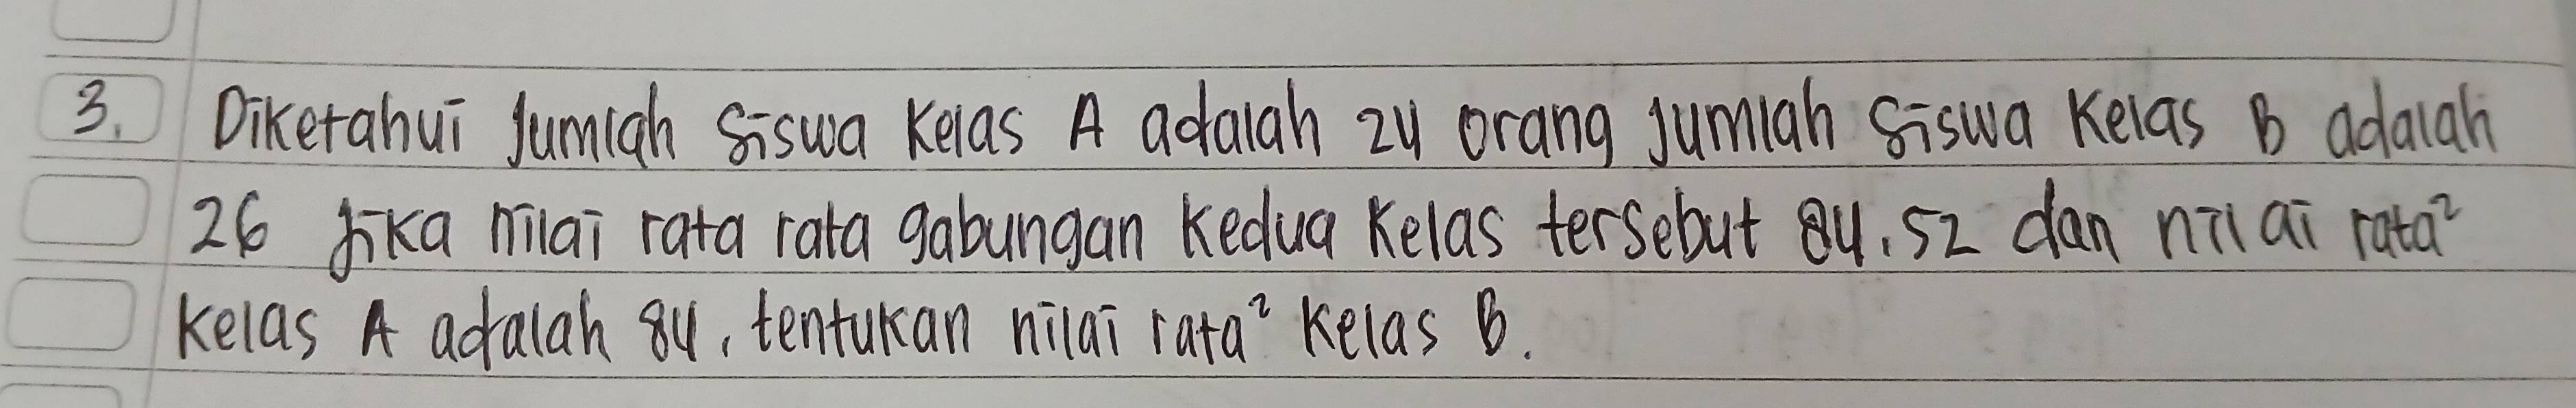 3. Diketahui Jumlah Siswa Kelas A adalah 24 orang Jumlah Siswa Kelas B adalah
26 Jika nilai rata rata gabungan Kedua Kelas tersebut 84,52 dan nilai rata²
Kelas A adalah 84, tentukan nilai rata² Kelas B.